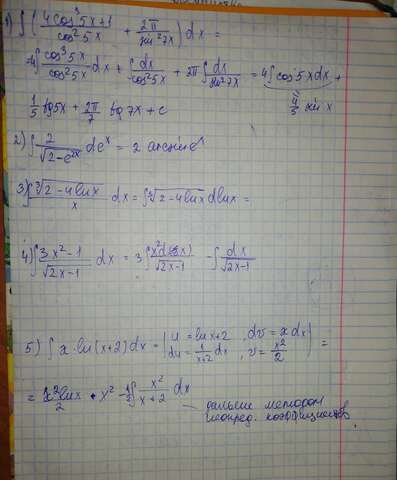 1) ∫ ( (4cos³5x+1)/(cos²5x) + 2π/(sin²7x) ) dx =
= 4∫ (cos³5x)/(cos²5x) dx + ∫ dx/(cos²5x) + 2π ∫ dx/(sin²7x) = 4∫cos5x dx +
1/5 tg5x + 2π/7 tg 7x + c 4/5 sin x
2) ∫ 2/√(2-e^(2x)) de^x = 2 arcsin e^x
3) ∫ ∛(2-4lnx)/x dx = ∫∛(2-4lnx) dlnx =
4) ∫ (3x²-1)/√(2x-1) dx = 3∫ /√(2x-1) - ∫ dx/√(2x-1)
5) ∫ x·ln(x+2)dx = | u = lnx+2, dv = x dx | =
| du = 1/(x+2) dx, v = x²/2 |
= x²lnx/2 + x² - 1/2∫ x²/(x+2) dx
дальше методом
неопред. коэффициентов